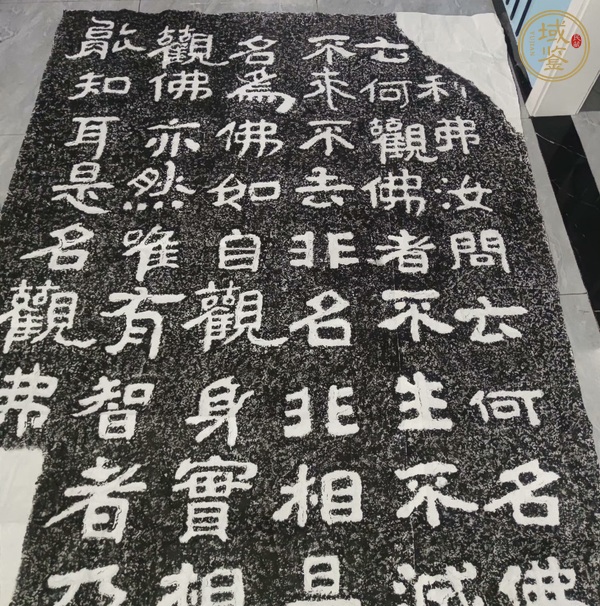 利弗汝問云何名佛
云何觀佛者不生不滅
不来不去非名非相是
名為佛如自觀身實相
觀佛亦然唯有智者乃
能知耳是名觀
域鑒